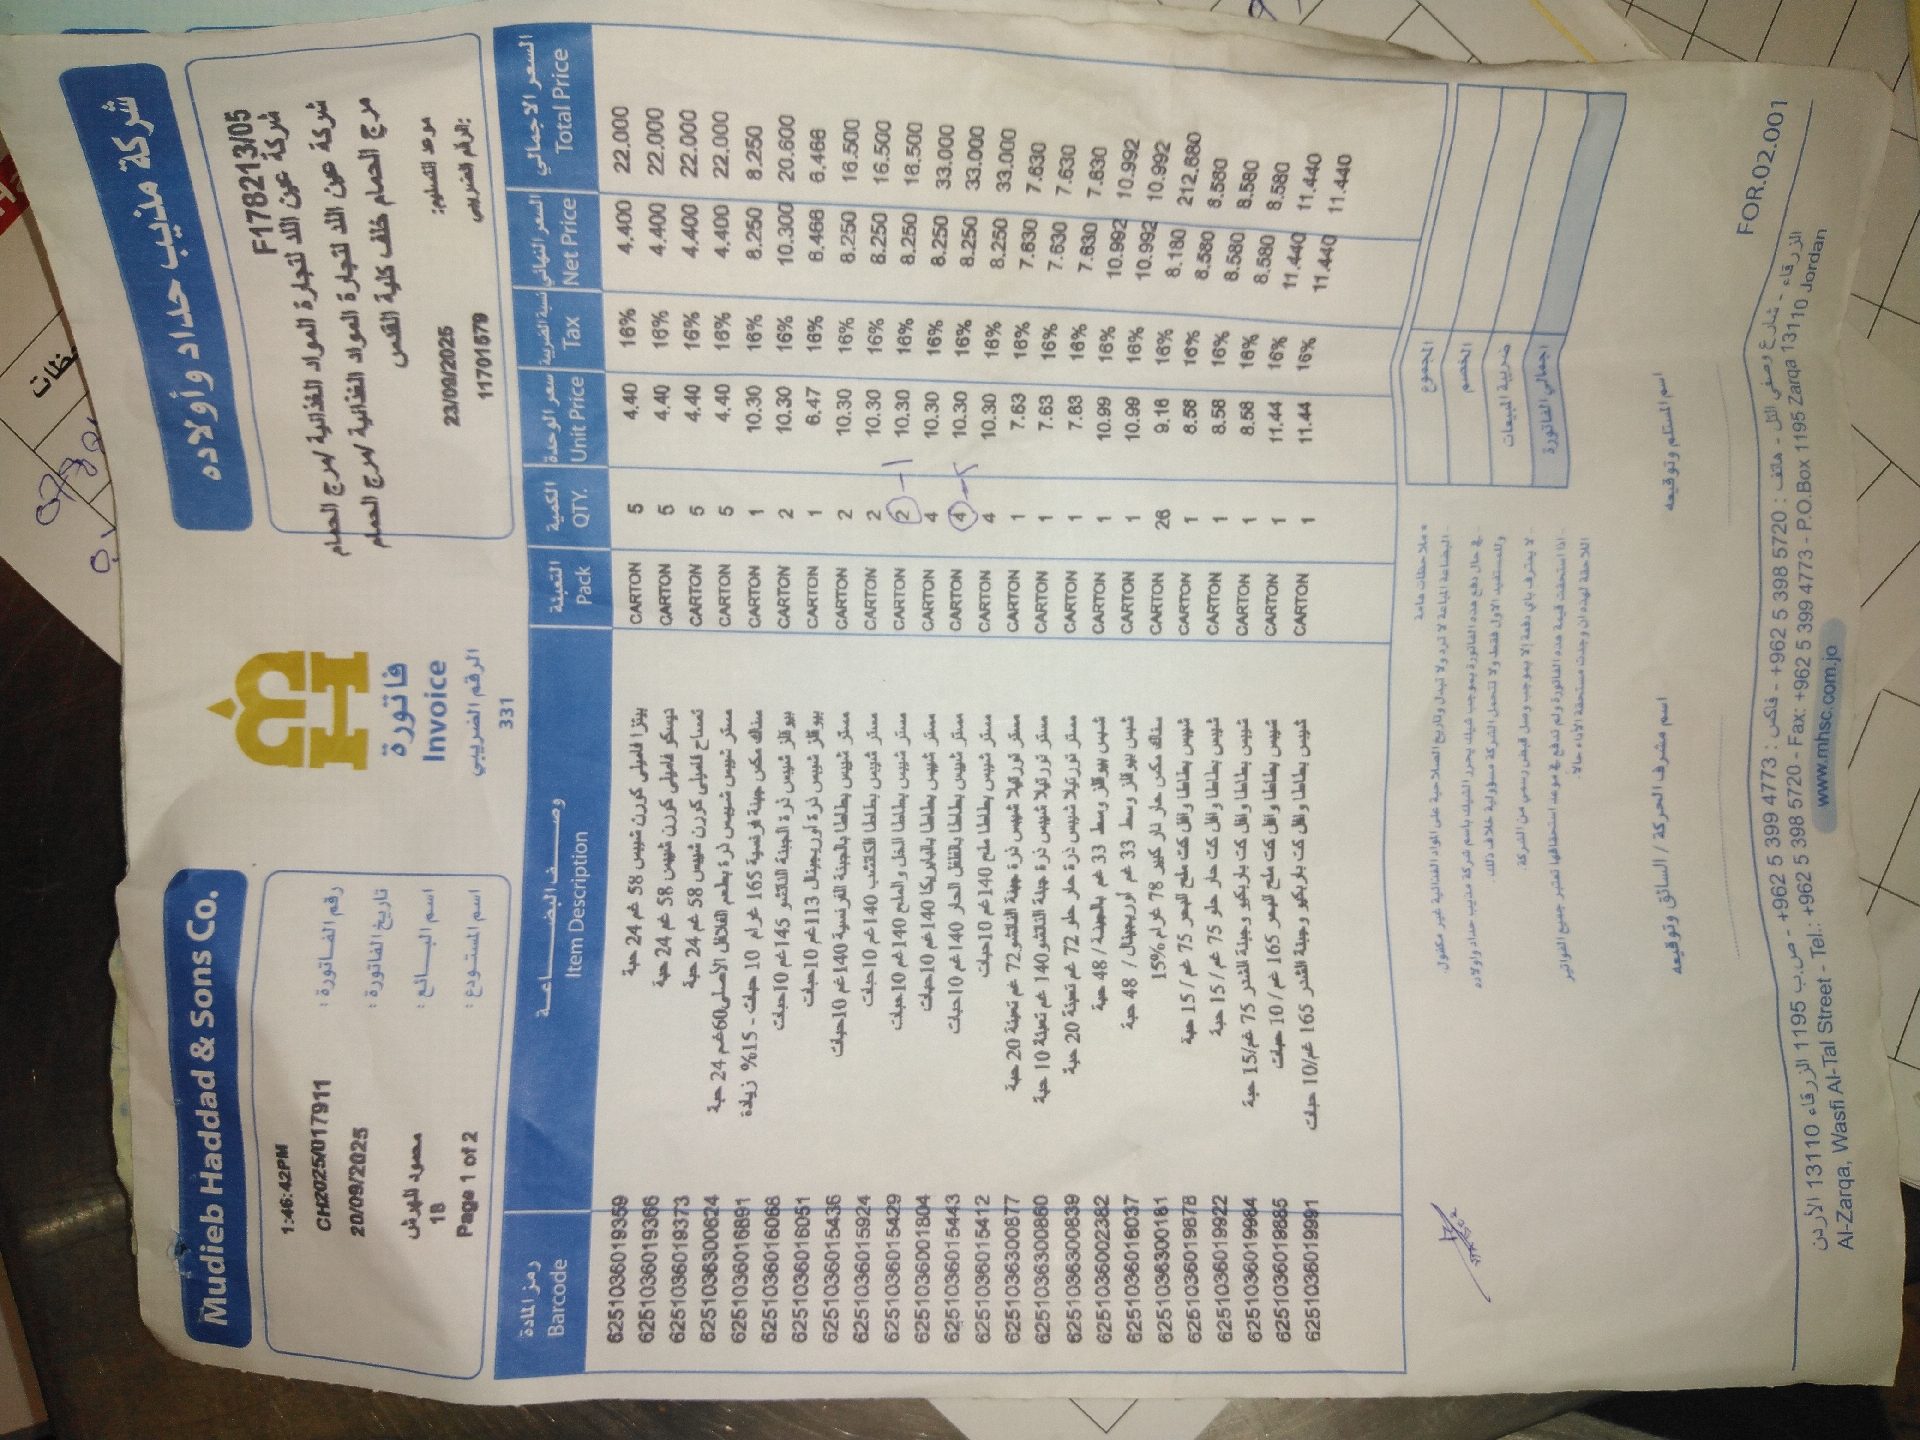 Mudieb Haddad & Sons Co.
شركة مذيب حداد وأولاده
1:46:42PM
رقم الفاتورة : CH2025/017911
تاريخ الفاتورة : 20/09/2025
اسم البائع :
اسم المستودع : 18
Page 1 of 2
فاتورة
Invoice
الرقم الضريبي
331
F178213/05
شركة عين اللد لتجارة المواد الغذائية /مرج الحمام
شركة عين اللد لتجارة المواد الغذائية /مرج الحمام
مرج الحمام خلف كلية القدس
موعد التسليم: 23/09/2025
الرقم الضريبي: 11701579
رمز المادة وصف البضاعة التعبئة الكمية سعر الوحدة نسبة الضريبة السعر النهائي السعر الاجمالي
Barcode Item Description Pack QTY. Unit Price Tax Net Price Total Price
6251036019359 بيتزا فاميلي كورن شيبس 58 غم 24 حبة CARTON 5 4.40 16% 4.400 22.000
6251036019366 ديسكو فاميلي كورن شيبس 58 غم 24 حبة CARTON 5 4.40 16% 4.400 22.000
6251036019373 تمساح فاميلي كورن شيبس 58 غم 24 حبة CARTON 5 4.40 16% 4.400 22.000
6251036300624 مستر شيبس شيبس ذرة بطعم الفلافل الأصلي60غم 24 حبة CARTON 5 4.40 16% 4.400 22.000
6251036016891 سناك مكس جبنة فرنسية 165 غرام 10 حبات - 15% زيادة CARTON 1 10.30 16% 8.250 8.250
6251036016068 بيوقلز شيبس ذرة الجبنة الناتشو 145غم 10حبات CARTON 2 10.30 16% 10.300 20.600
6251036016051 بيوقلز شيبس ذرة أوريجينال 113غم 10حبات CARTON 1 6.47 16% 6.466 6.466
6251036015436 مستر شيبس بطاطا بالجبنة الفرنسية 140غم 10حبات CARTON 2 10.30 16% 8.250 16.500
6251036015924 مستر شيبس بطاطا الكاتشب 140غم 10حبات CARTON 2 10.30 16% 8.250 16.500
6251036015429 مستر شيبس بطاطا الخل والملح 140غم 10حبات CARTON 2 -1 10.30 16% 8.250 16.500
6251036001804 مستر شيبس بطاطا بالبابريكا 140غم 10حبات CARTON 4 10.30 16% 8.250 33.000
6251036015443 مستر شيبس بطاطا بالفلفل الحار 140غم 10حبات CARTON 4 10.30 16% 8.250 33.000
6251036015412 مستر شيبس بطاطا ملح 140غم 10حبات CARTON 4 10.30 16% 8.250 33.000
6251036300877 مستر تورتيلا شيبس ذرة جبنة الناتشو72 غم تعبئة 20 حبة CARTON 1 7.63 16% 7.630 7.630
6251036300860 مستر تورتيلا شيبس ذرة جبنة الناتشو140 غم تعبئة 10 حبة CARTON 1 7.63 16% 7.630 7.630
6251036300839 مستر تورتيلا شيبس ذرة حار حلو 72 غم تعبئة 20 حبة CARTON 1 7.63 16% 7.630 7.630
6251036002382 شيبس بيوقلز وسط 33 غم بالجبنة / 48 حبة CARTON 1 10.99 16% 10.992 10.992
6251036016037 شيبس بيوقلز وسط 33 غم اوريجينال / 48 حبة CARTON 1 10.99 16% 10.992 10.992
6251036300181 سناك مكس حار نار كبير 78 غرام 15% CARTON 26 9.16 16% 8.180 212.680
6251036019878 شيبس بطاطا وافل كت ملح البحر 75 غم / 15 حبة CARTON 1 8.58 16% 8.580 8.580
6251036019922 شيبس بطاطا وافل كت حار حلو 75 غم / 15 حبة CARTON 1 8.58 16% 8.580 8.580
6251036019984 شيبس بطاطا وافل كت باربكيو وجبنة الشدر 75 غم/15 حبة CARTON 1 8.58 16% 8.580 8.580
6251036019885 شيبس بطاطا وافل كت ملح البحر 165 غم / 10 حبات CARTON 1 11.44 16% 11.440 11.440
6251036019991 شيبس بطاطا وافل كت باربكيو وجبنة الشدر 165 غم/10 حبات CARTON 1 11.44 16% 11.440 11.440
المجموع
الخصم
ضريبة المبيعات
اجمالي الفاتورة
* ملاحظات عامة
اسم المستلم وتوقيعه
اسم مشرف الحركة / السائق وتوقيعه
FOR.02.001
الزرقاء - شارع وصفي التل - هاتف : 5720 398 5 962+ - فاكس : 4773 399 5 962+ - ص.ب 1195 الزرقاء 13110 الأردن
Al-Zarqa, Wasfi Al-Tal Street - Tel.: +962 5 398 5720 - Fax: +962 5 399 4773 - P.O.Box 1195 Zarqa 13110 Jordan
www.mhsc.com.jo